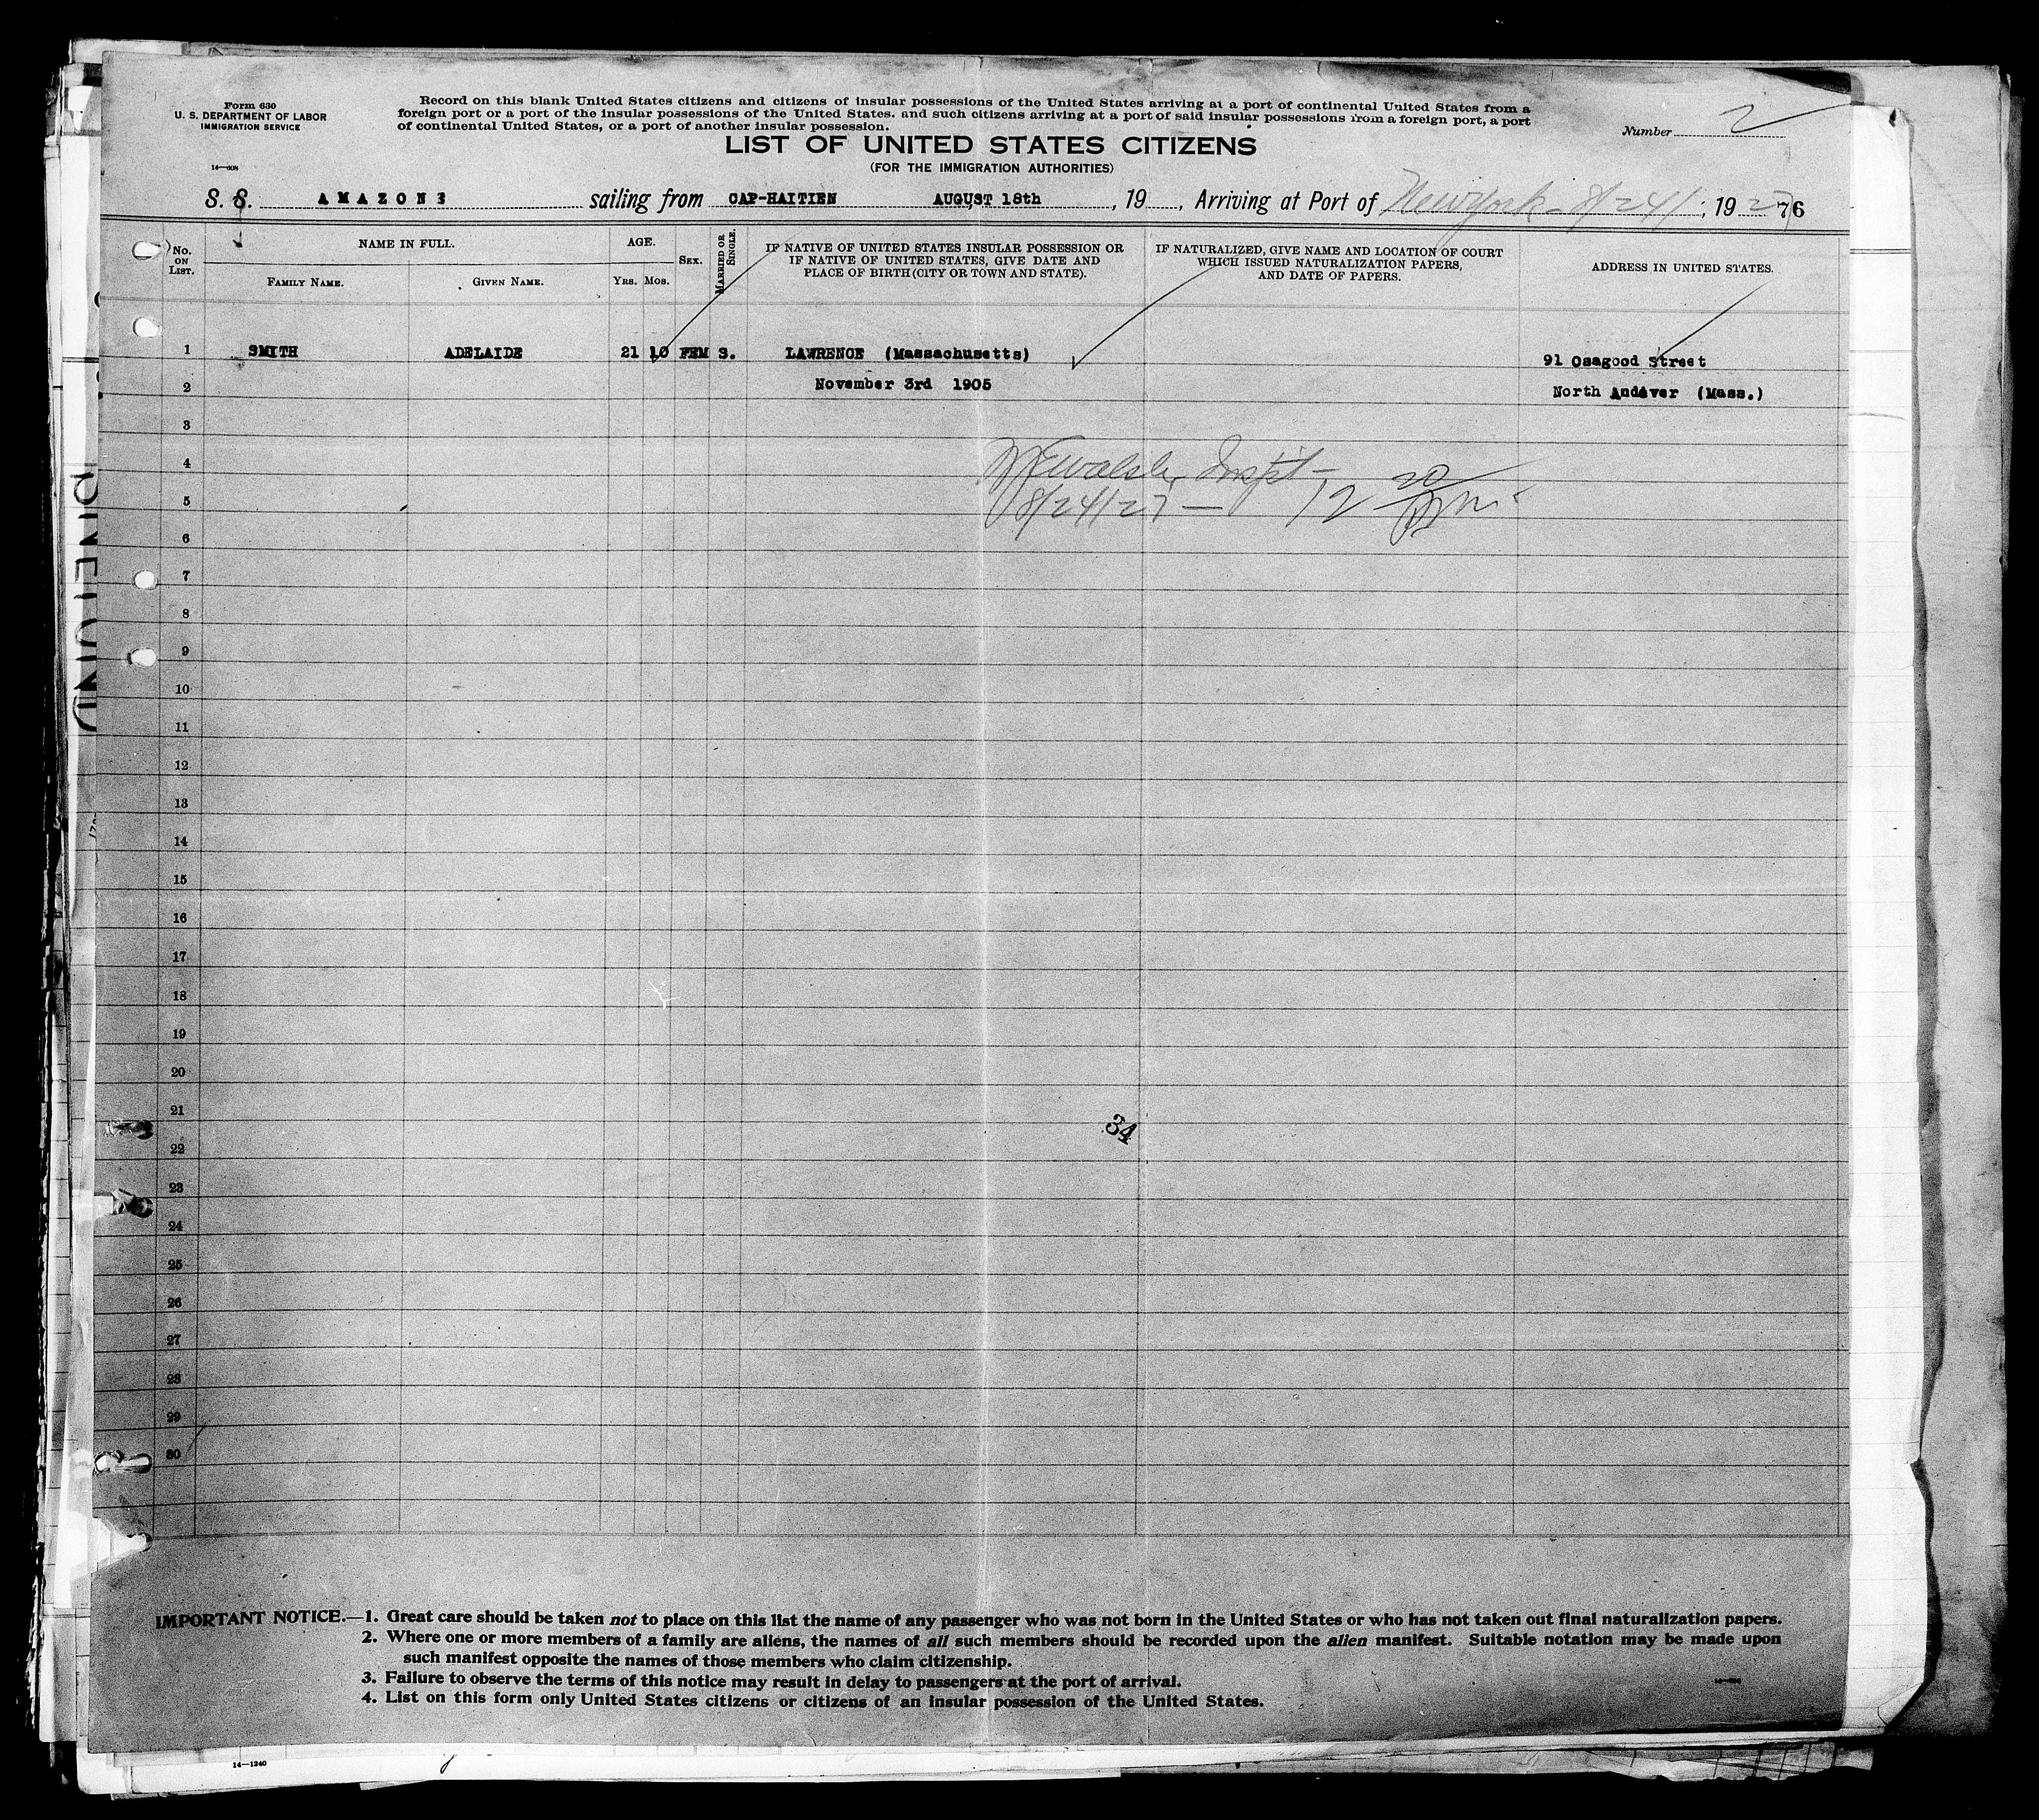 Form 630
U. S. DEPARTMENT OF LABOR
IMMIGRATION SERVICE
14—608
Record on this blank United States citizens and citizens of insular possessions of the United States arriving at a port of continental United States from a
foreign port or a port of the insular possessions of the United States. and such citizens arriving at a port of said insular possessions from a foreign port, a port
of continental United States, or a port of another insular possession.
Number 2
LIST OF UNITED STATES CITIZENS
(FOR THE IMMIGRATION AUTHORITIES)
S. S. AMAZONE sailing from CAP-HAITIEN AUGUST 18th, 19 , Arriving at Port of New York - 8/24/ ; 1927 76
No. ON LIST.
NAME IN FULL.
FAMILY NAME.
GIVEN NAME.
AGE.
YRS. MOS.
SEX.
MARRIED OR SINGLE.
IF NATIVE OF UNITED STATES INSULAR POSSESSION OR
IF NATIVE OF UNITED STATES, GIVE DATE AND
PLACE OF BIRTH (CITY OR TOWN AND STATE).
IF NATURALIZED, GIVE NAME AND LOCATION OF COURT
WHICH ISSUED NATURALIZATION PAPERS,
AND DATE OF PAPERS.
ADDRESS IN UNITED STATES.
1 SMITH ADELAIDE 21 10 FEM S. LAWRENCE (Massachusetts) 91 Osagood Street
2 November 3rd 1905 North Andover (Mass.)
3
4 Walsh, Inspt-
5 8/24/27 — 12 20 pm
6
7
8
9
10
11
12
13
14
15
16
17
18
19
20
21
34
22
23
24
25
26
27
28
29
30
IMPORTANT NOTICE.—1. Great care should be taken not to place on this list the name of any passenger who was not born in the United States or who has not taken out final naturalization papers.
2. Where one or more members of a family are aliens, the names of all such members should be recorded upon the alien manifest. Suitable notation may be made upon
such manifest opposite the names of those members who claim citizenship.
3. Failure to observe the terms of this notice may result in delay to passengers at the port of arrival.
4. List on this form only United States citizens or citizens of an insular possession of the United States.
14—1240